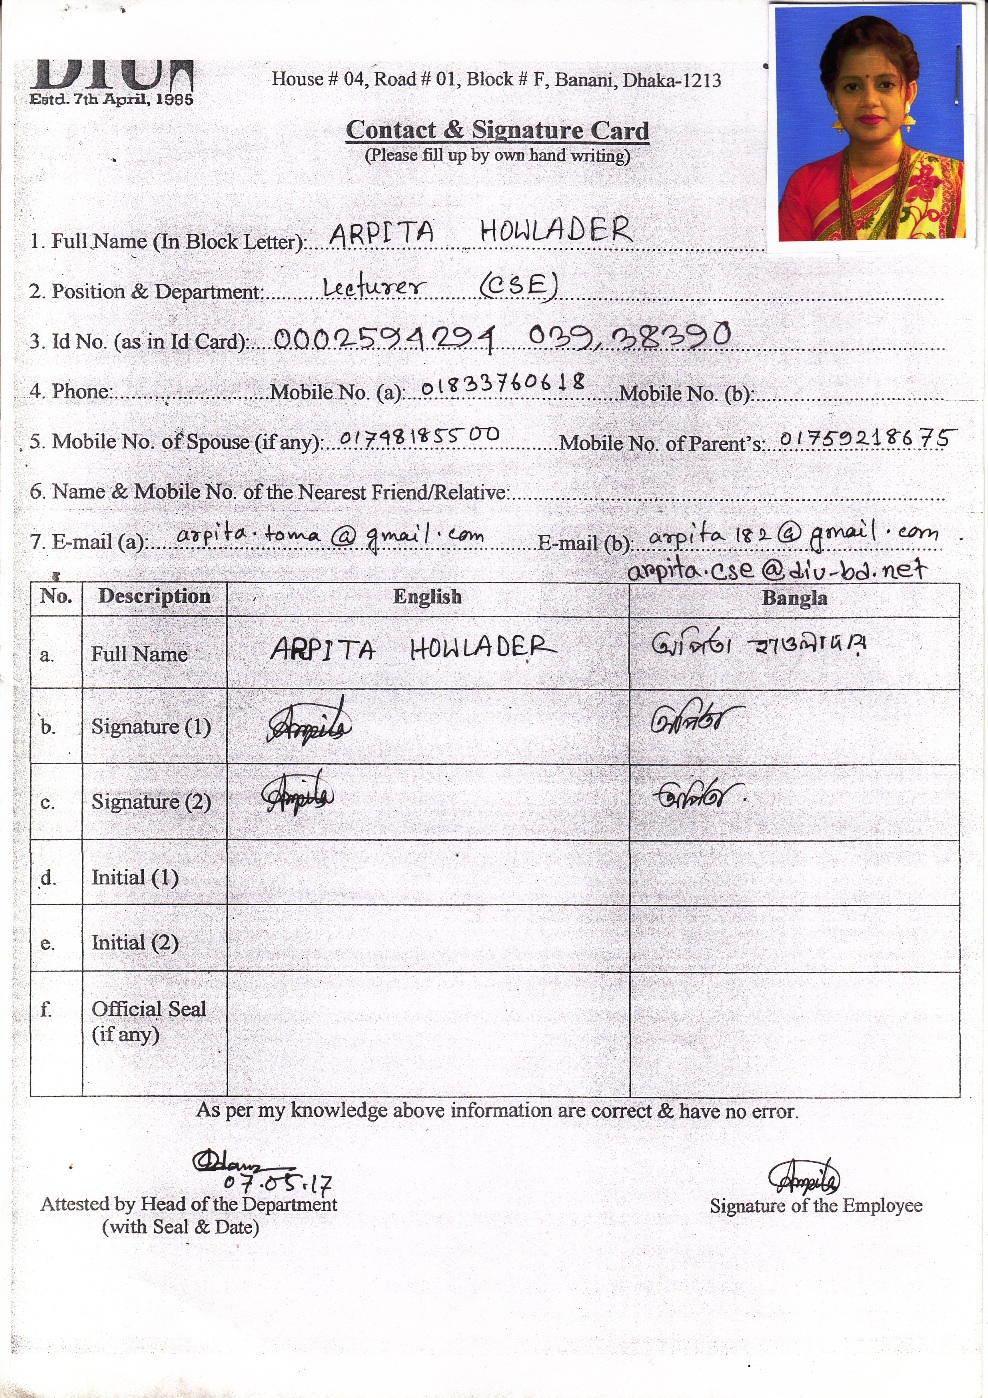 DIU
Estd. 7th April, 1995
House # 04, Road # 01, Block # F, Banani, Dhaka-1213
Contact & Signature Card
(Please fill up by own hand writing)
1. Full Name (In Block Letter): ARPITA HOWLADER
2. Position & Department: Lecturer (CSE)
3. Id No. (as in Id Card): 0002594294 039,38390
4. Phone: Mobile No. (a): 01833760618 Mobile No. (b):
5. Mobile No. of Spouse (if any): 01748185500 Mobile No. of Parent's: 01759218675
6. Name & Mobile No. of the Nearest Friend/Relative:
7. E-mail (a): arpita.toma@gmail.com E-mail (b): arpita182@gmail.com
arpita.cse@diu-bd.net
No. Description English Bangla
a. Full Name ARPITA HOWLADER অর্পিতা হাওলাদার
b. Signature (1) Arpita অর্পিতা
c. Signature (2) Arpita অর্পিতা
d. Initial (1)
e. Initial (2)
f. Official Seal
(if any)
As per my knowledge above information are correct & have no error.
07.05.17 Arpita
Attested by Head of the Department Signature of the Employee
(with Seal & Date)